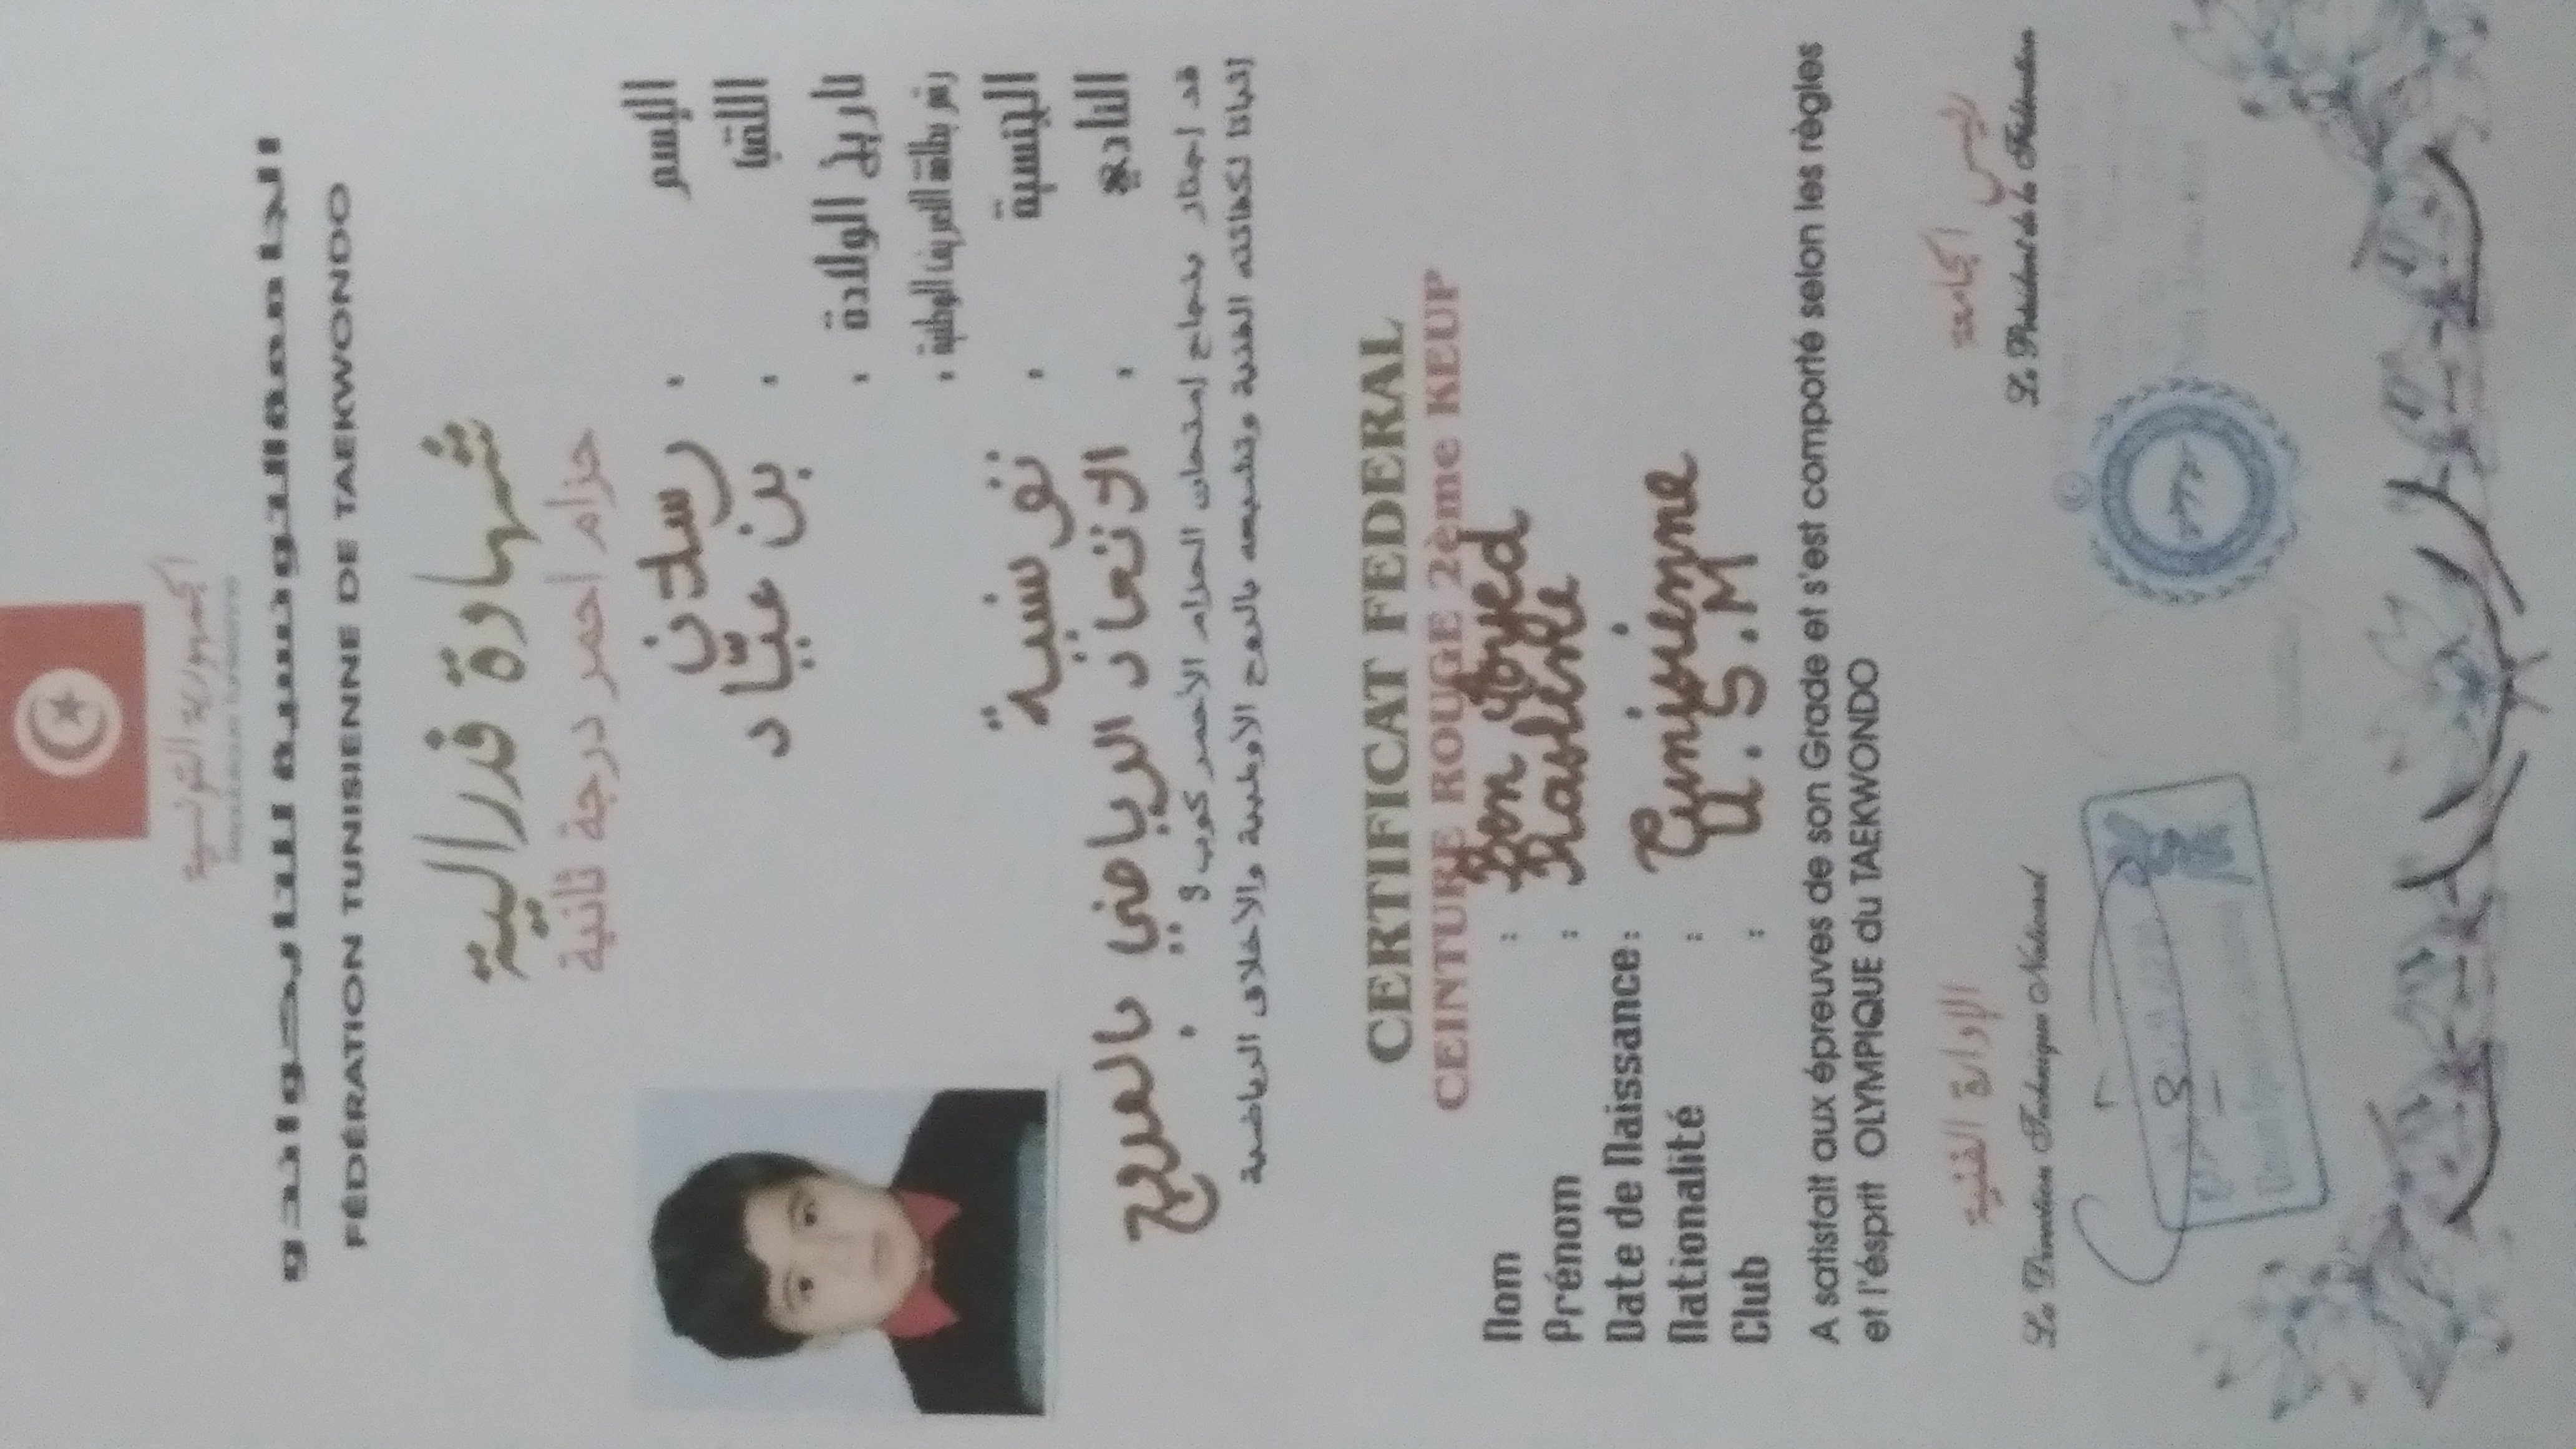 الجمهورية التونسية
الجامعة التونسية للتايكواندو
FÉDÉRATION TUNISIENNE DE TAEKWONDO
شهادة فدرالية
حزام احمر درجة ثانية
الإسم :
رسلان
اللقب :
بن عيّاد
تاريخ الولادة :
رقم بطاقة التعريف الوطنية :
الجنسية : تونسية
النادي : الاتحاد الرياضي بالمروج
قد اجتاز بنجاح امتحان الحزام الأحمر كوب
إثباتا لكفائته الفنية وتشبعه بالروح الأولمبية والاخلاق الرياضية
CERTIFICAT FEDERAL
CEINTURE ROUGE 2ème KEUP
Nom : Ben Ayed
Prénom :
Date de Naissance :
Nationalité : Tunisienne
Club : U.S.M
A satisfait aux épreuves de son Grade et s'est comporté selon les règles
et l'ésprit OLYMPIQUE du TAEKWONDO
الإدارة الفنية
رئيس الجامعة
La Direction Technique National
Le Président de la Fédération